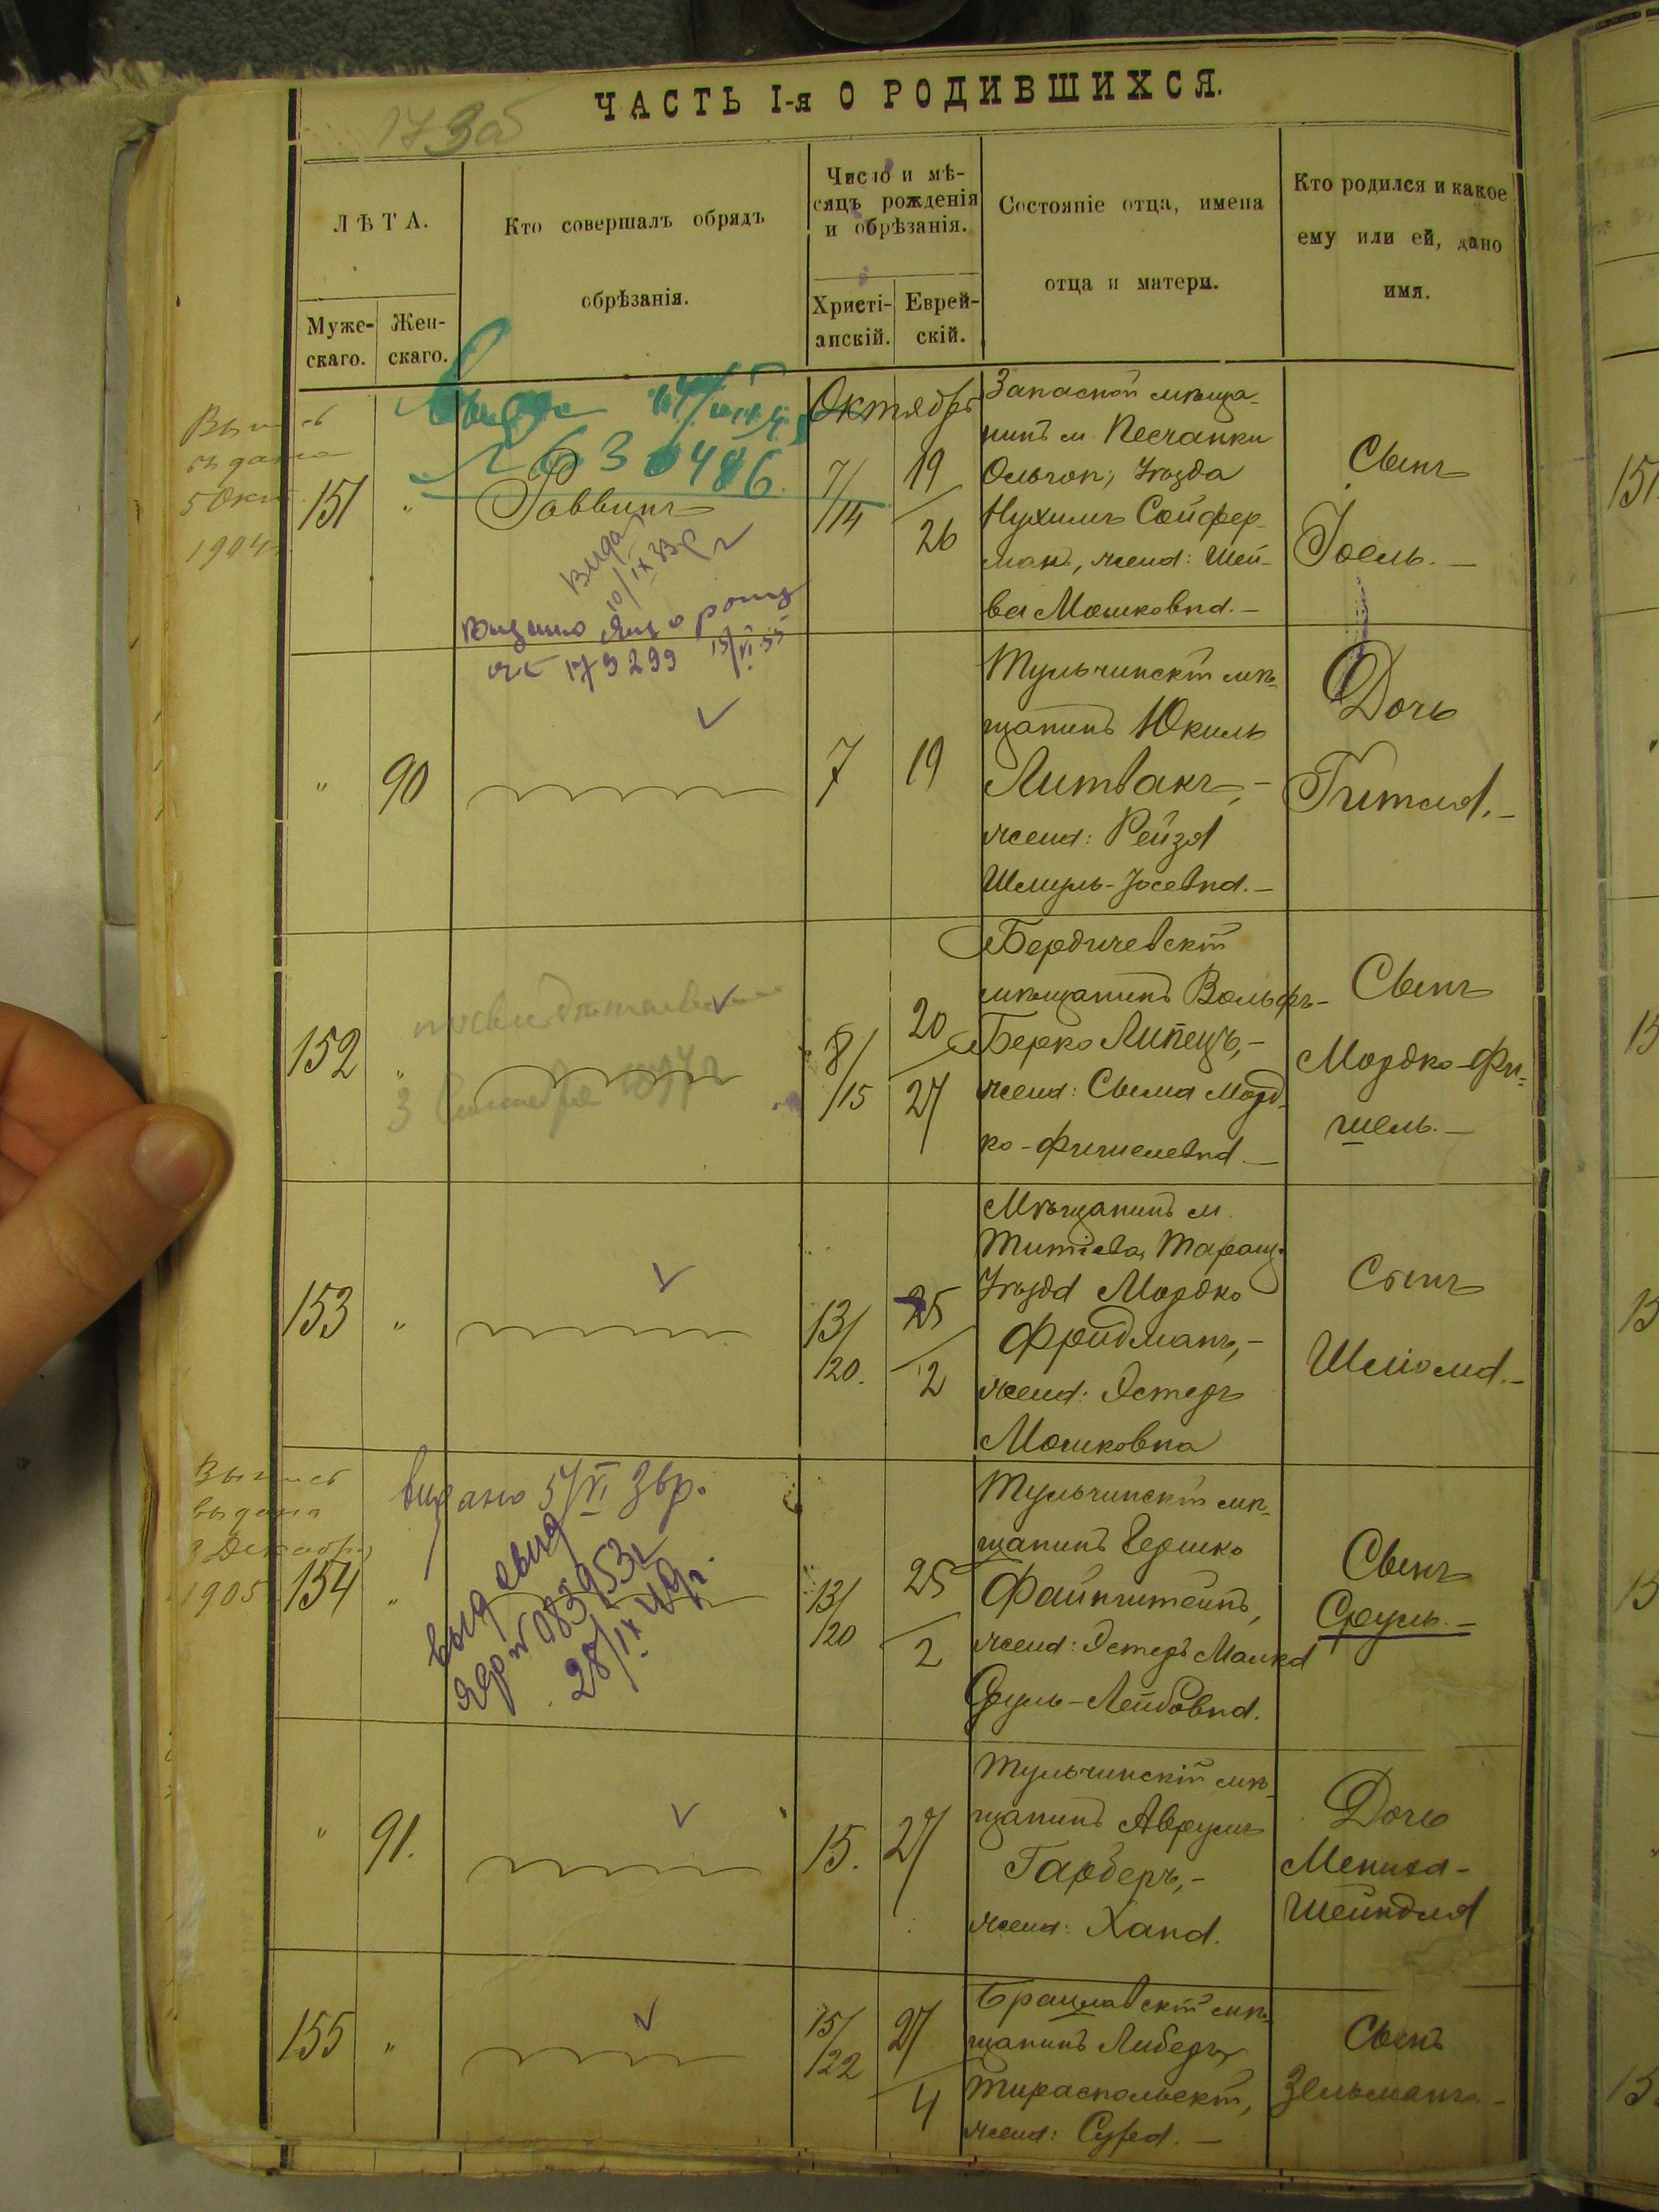 173об
ЧАСТЬ I-я О РОДИВШИХСЯ.
ЛѢТА.
Муже-
скаго.
Жен-
скаго.
Кто совершалъ обрядъ
обрѣзанія.
Число и мѣ-
сяцъ рожденія
и обрѣзанія.
Христі-
анскій.
Еврей-
скій.
Состояніе отца, имена
отца и матери.
Кто родился и какое
ему или ей, дано
имя.
Выпись
5 Окт.
1904
151
"
Раввинъ
Октябрь
7/14
19/26
Запасной мѣща-
нинъ м. Песчанки
Ольгоп; Уѣзда
Нухимъ Сойфер-
манъ, жена: Шей-
ва Мошковна.—
Сынъ
Іоель.—
№ 179299
"
90
7
19
Тульчинскій мѣ-
щанинъ Юкиль
Литвакъ,—
жена: Рейза
Шмуль-Іосевна.—
Дочь
Гитля.—
152
"
8/15
20/27
Бердичевскій
мѣщанинъ Вольфъ-
Берко Липецъ,—
жена: Сыма Морд-
ко-Фишелевна.—
Сынъ
Мордко-Фи-
шель.—
153
"
13/20.
25/2
Мѣщанинъ м.
Титіева, Таращ.
Уѣзда Мордко
Фройдманъ,—
жена: Эстеръ
Мошковна
Сынъ
Шліома.—
Выпись
выдана
Декабр.
1905
154
"
выд свид
28/IX 49г.
13/20
25/2
Тульчинскій мѣ-
щанинъ Гершко
Файнштейнъ,
жена: Эстеръ Малка
Сруль-Лейбовна.
Сынъ
Сруль.—
"
91.
15.
27
Тульчинскій мѣ-
щанинъ Аврумъ
Гарберъ,—
жена: Хана.
Дочь
Мениха-
Шейндля
155
"
15/22
27/4
Брацлавскій мѣ-
щанинъ Либеръ
Тираспольскій,
жена: Сура.—
Сынъ
Зельманъ.—